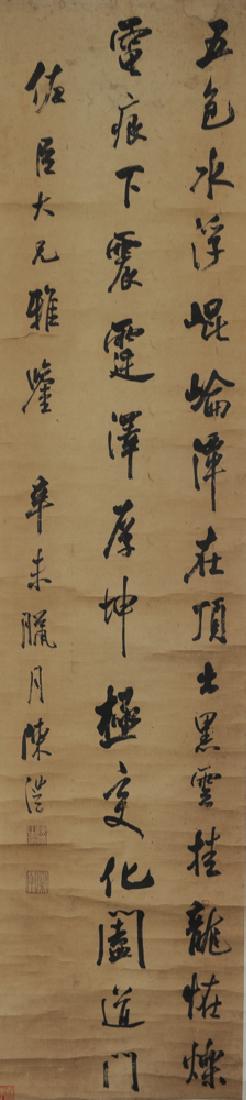 五色水浮崐崘潭在頂出黑雲挂龍恠爍
電痕下震霆澤厚坤極變化闔道門
佐臣大兄雅鑒 辛未臘月陳澧